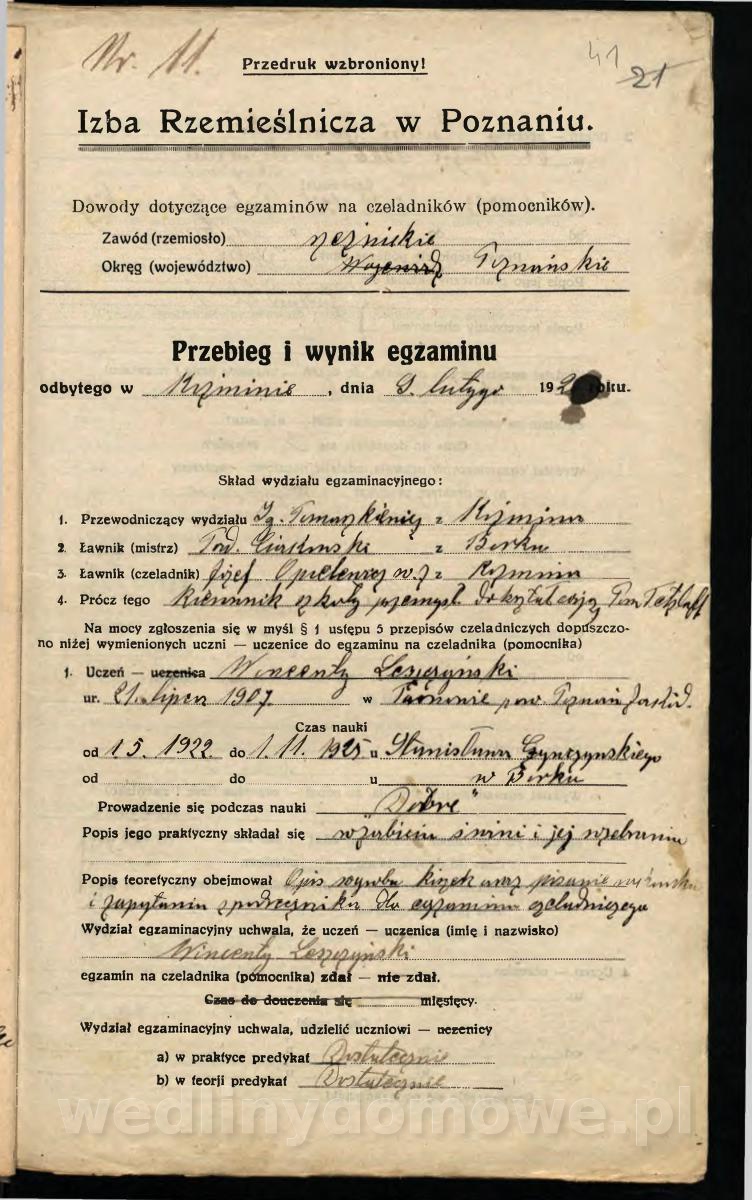 Nr. 11.
Przedruk wzbroniony!
41
21
Izba Rzemieślnicza w Poznaniu.
Dowody dotyczące egzaminów na czeladników (pomocników).
Zawód (rzemiosło) rzeźnickie
Okręg (województwo) Poznańskie
Przebieg i wynik egzaminu
odbytego w Koźminie, dnia 9. lutego 192 roku.
Skład wydziału egzaminacyjnego:
1. Przewodniczący wydziału Ig. z Koźmina
2. Ławnik (mistrz) z Borku
3. Ławnik (czeladnik) Józef z Koźmina
4. Prócz tego Kierownik szkoły Pan
Na mocy zgłoszenia się w myśl § 1 ustępu 5 przepisów czeladniczych dopuszczo-
no niżej wymienionych uczni — uczenice do egzaminu na czeladnika (pomocnika)
1. Uczeń — uczenica Wincenty Leszczyński
ur. 21. lipca 1907 w pow. Poznań
Czas nauki
od 1 5. 1922 do 1. 11. 1925 u Stanisława
od do u w Borku
Prowadzenie się podczas nauki „Dobre"
Popis jego praktyczny składał się w zabiciu świni i jej rozebraniu
Popis teoretyczny obejmował Opis wyrobu kiszek oraz pisanie
i zapytania z podręcznika dla egzaminu czeladniczego
Wydział egzaminacyjny uchwala, że uczeń — uczenica (imię i nazwisko)
Wincenty Leszczyński
egzamin na czeladnika (pomocnika) zdał — nie zdał.
Czas do douczenia się miesięcy.
Wydział egzaminacyjny uchwala, udzielić uczniowi — uczenicy
a) w praktyce predykat Dostatecznie
b) w teorji predykat Dostatecznie
wedlinydomowe.pl